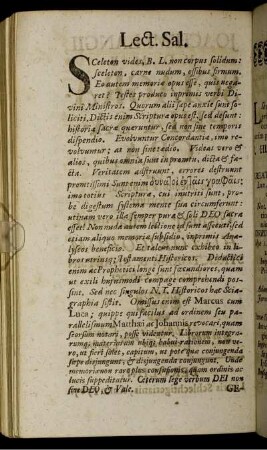 Lect. Sal.
SCeleton vides, B. L. non corpus solidum:
sceleton, carne nudum, ossibus firmum.
Eo autem memoriæ opus esse, quis negaret?
Testes produco inprimis verbi Divini
Ministros. Quorum alii sæpe anxie sunt soliciti,
Dictis enim Scripturæ opus est, sed desunt:
historia sacræ quæruntur sed non sine temporis
dispendio. Evolvuntur Concordantiæ, imo revolvuntur;
at non sine tædio. Videas vero &
alios, quibus omnia sunt in promtu, dicta & facta.
Veritatem adstruunt, errores destruunt
promtissimi
imo totius Scripturæ, cui innutriti sunt, probe
digestum systema mente sua circumferunt:
utinam vero illa semper pura & soli DEO sacra
esset! Non nuda autem lectione id sunt assecuti, sed
etiam aliquo memoriæ subsidio, inprimis
beneficio. Et talem nunc exhibeo in libros
utriusq; Testamenti Historicos; Didactici
enim ac Prophetici longe sunt fœcundiores, quam
ut exili hujusmodi compage comprehendi possint.
Sed nec singulos N. T. Historicos hæc Sciagraphia
sistit. Omissus enim est Marcus cum
Luca; quippe qui facilius ad ordinem seu parallelismum
Matthæi ac Johannis revocari, quam
seorsim notari, posse videntur. Librorum integrorum,
materiarum nihil habui rationem, non vero,
ut fieri solet, capitum, ut pote quæ conjungenda
sæpe disjungunt, & disjungenda conjungunt. Unde
memoria non raro plus confusionis, quam ordinis ac
lucis suppeditatur. Ceterum lege verbum DEI non
sine DEO, & Vale.
GE-